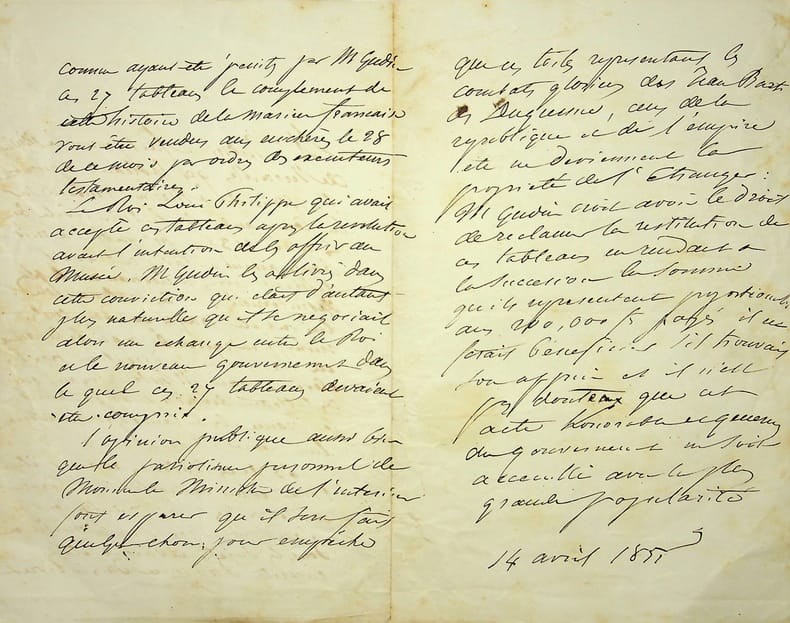 comme ayant été peints par M Gudin
ces 27 tableaux le complement de
cette histoire de la marine francaise
vont être vendus aux enchères le 28
de ce mois par ordre des executeurs
testamentaires.
Le Roi Louis Philippe qui avait
accepté ces tableaux apres la revolution
avait l'intention de les offrir au
Musée. M Gudin les a livrés dans
cette conviction qui etait d'autant
plus naturelle qu'il se negociait
alors un echange entre le Roi
et le nouveau gouvernement dans
le quel ces 27 tableaux devaient
être compris.
L'opinion publique aussi bien
que le patriotisme personnel de
Monsieur le Ministre de l'interieur
font esperer qu'il sera fait
quelque chose pour empêcher
que ces toiles representant les
combats glorieux des Jean Bart
des Duquesne, ceux de la
republique et de l'empire
ne deviennent la
propriété de l'Etranger:
M Gudin croit avoir le droit
de reclamer la restitution de
ces tableaux en rendant a
la succession la somme
qu'ils representent proportionnel
aux 200,000 fs payés il
ferait bénéficier
son et il n'est
pas douteux que cet
acte honorable et genereux
du gouvernement ne soit
accueilli avec la plus
grande popularité
14 avril 1851